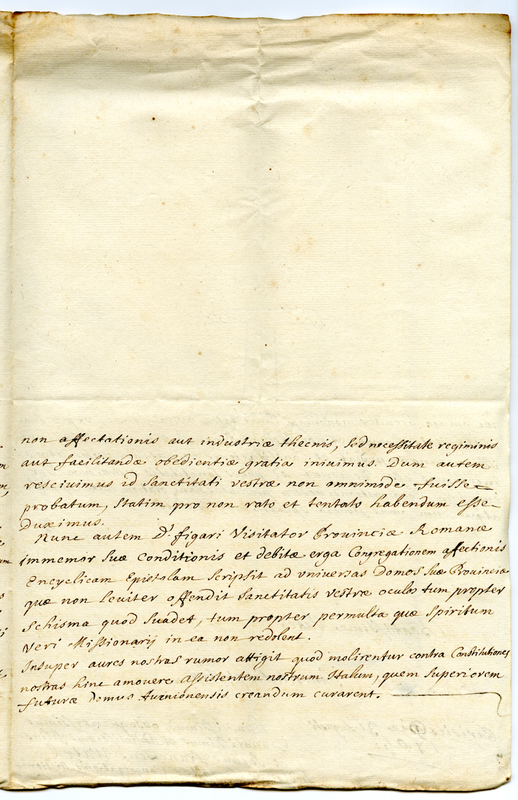 non affectationis aut industriæ thecnis, sed necessitate regiminis
aut facilitandæ obedientiæ gratia iniuimus. Dum autem
resciuimus id Sanctitati vestræ non omnimode fuisse =
probatum, statim pro non rato et tentato habendum esse
Duximus.
Nunc autem D. figari Visitator Prouinciæ Romanæ
immemor suæ Conditionis et debitæ erga Congregationem affectionis
Encyclicam Epistolam scripsit ad vniuersas Domos suæ Prouinciæ
quæ non leuiter offendit Sanctitatis vestræ oculos tum propter
schisma quod suadet, tum propter permulta quæ Spiritum
Veri Missionarij in ea non redolent.
Insuper aures nostras rumor attigit quod molirentur contra Constitutiones
nostras hinc amouere assistentem nostrum Italum, quem superiorem
futuræ Domus Auenionensis creandum curarent.